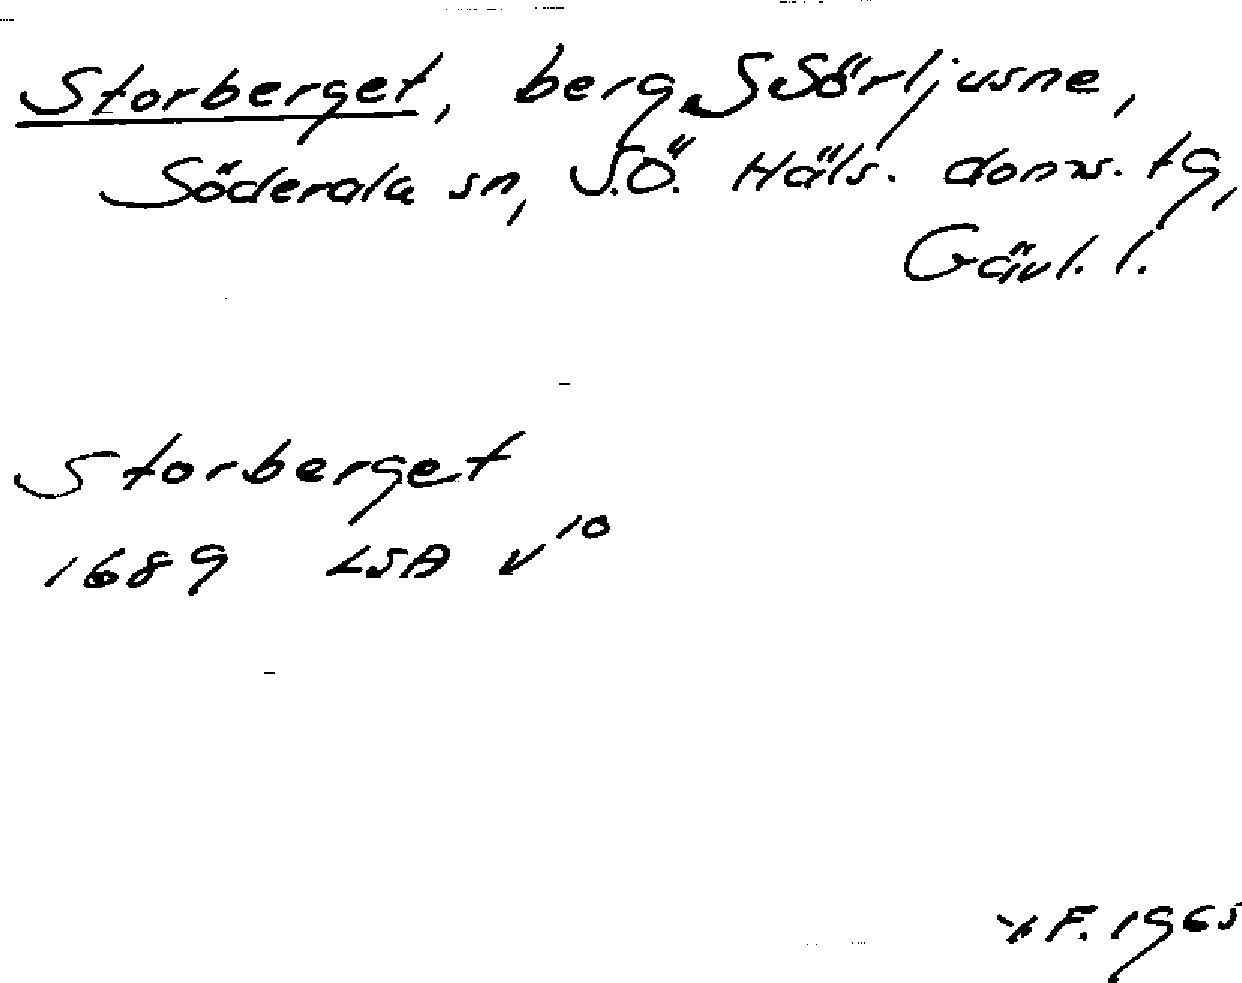 Storberget, berg S Sörljusne,
Söderala sn, S.Ö. Häls. doms. tg,
Gävl. l.
Storberget
1689 LSA V¹⁰
F. 1965